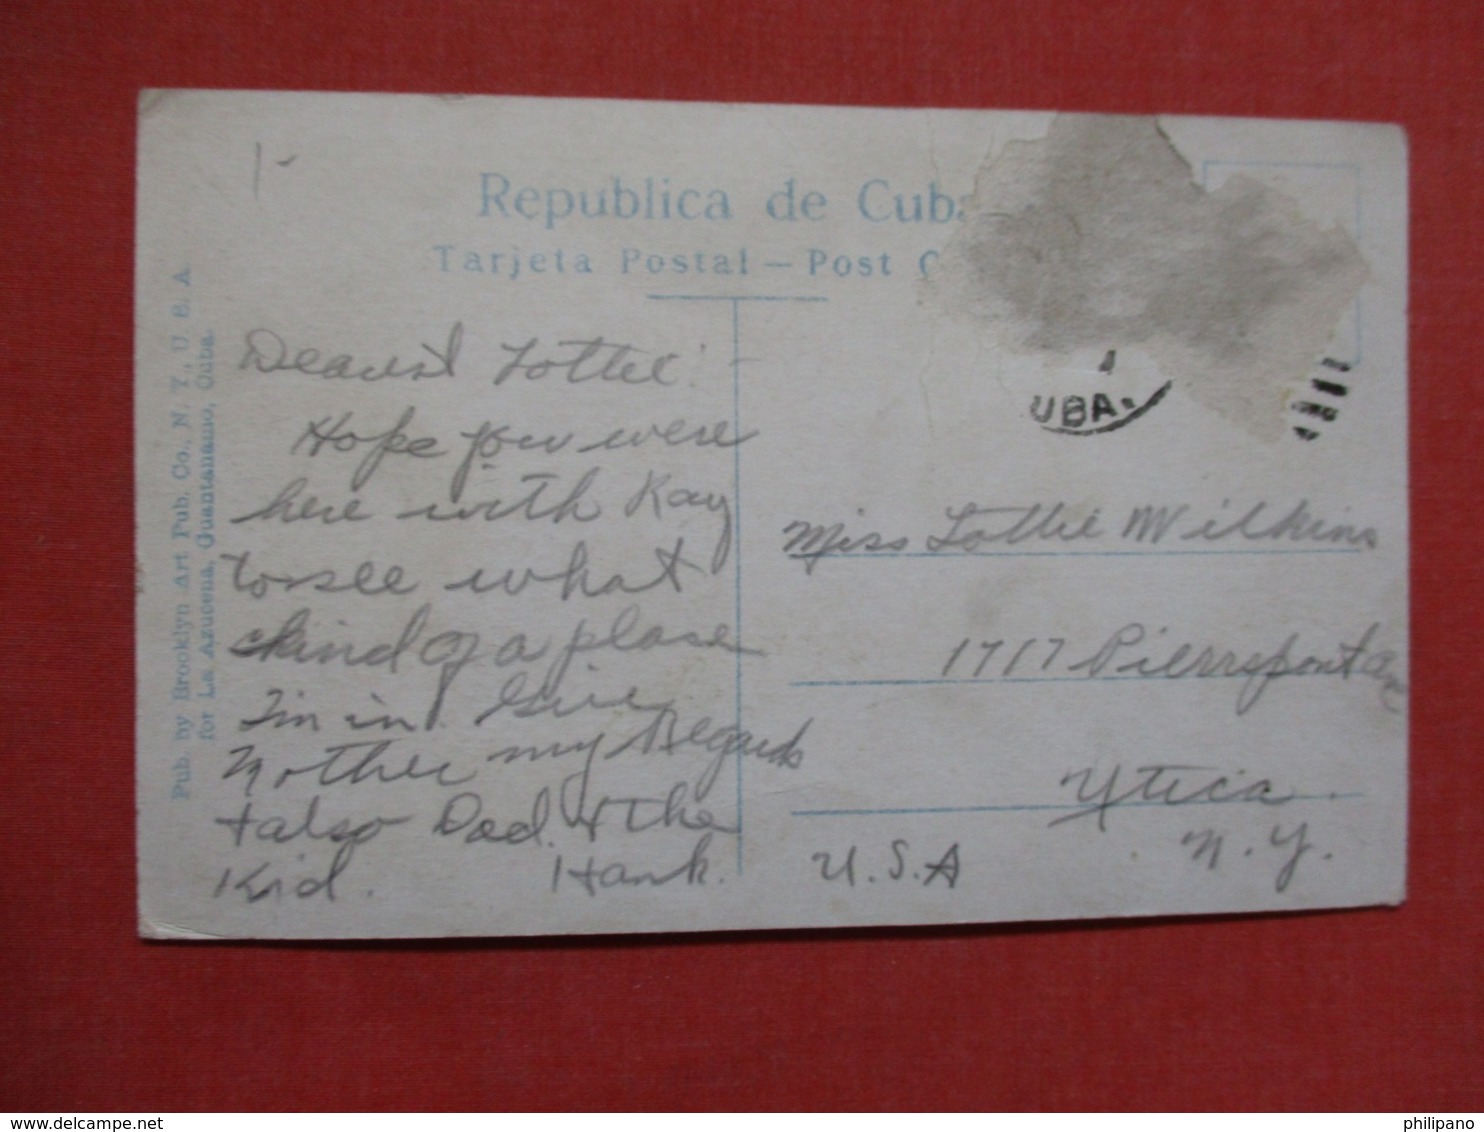 1-
Republica de Cuba
Tarjeta Postal — Post C
Pub. by Brooklyn Art Pub. Co., N. Y., U. S. A.
for La Azucena, Guantanamo, Cuba.
Dearest Lottie:-
Hope you were
here with Kay
to see what
kind of a place
I'm in. Give
Mother my Regards
& also Dad. & the
Kid. Hank.
1
UBA.
Miss Lottie Wilkins
1717 Pierrepont Ave
Utica.
N.Y.
U.S.A
http://www.delcampe.net
philipano